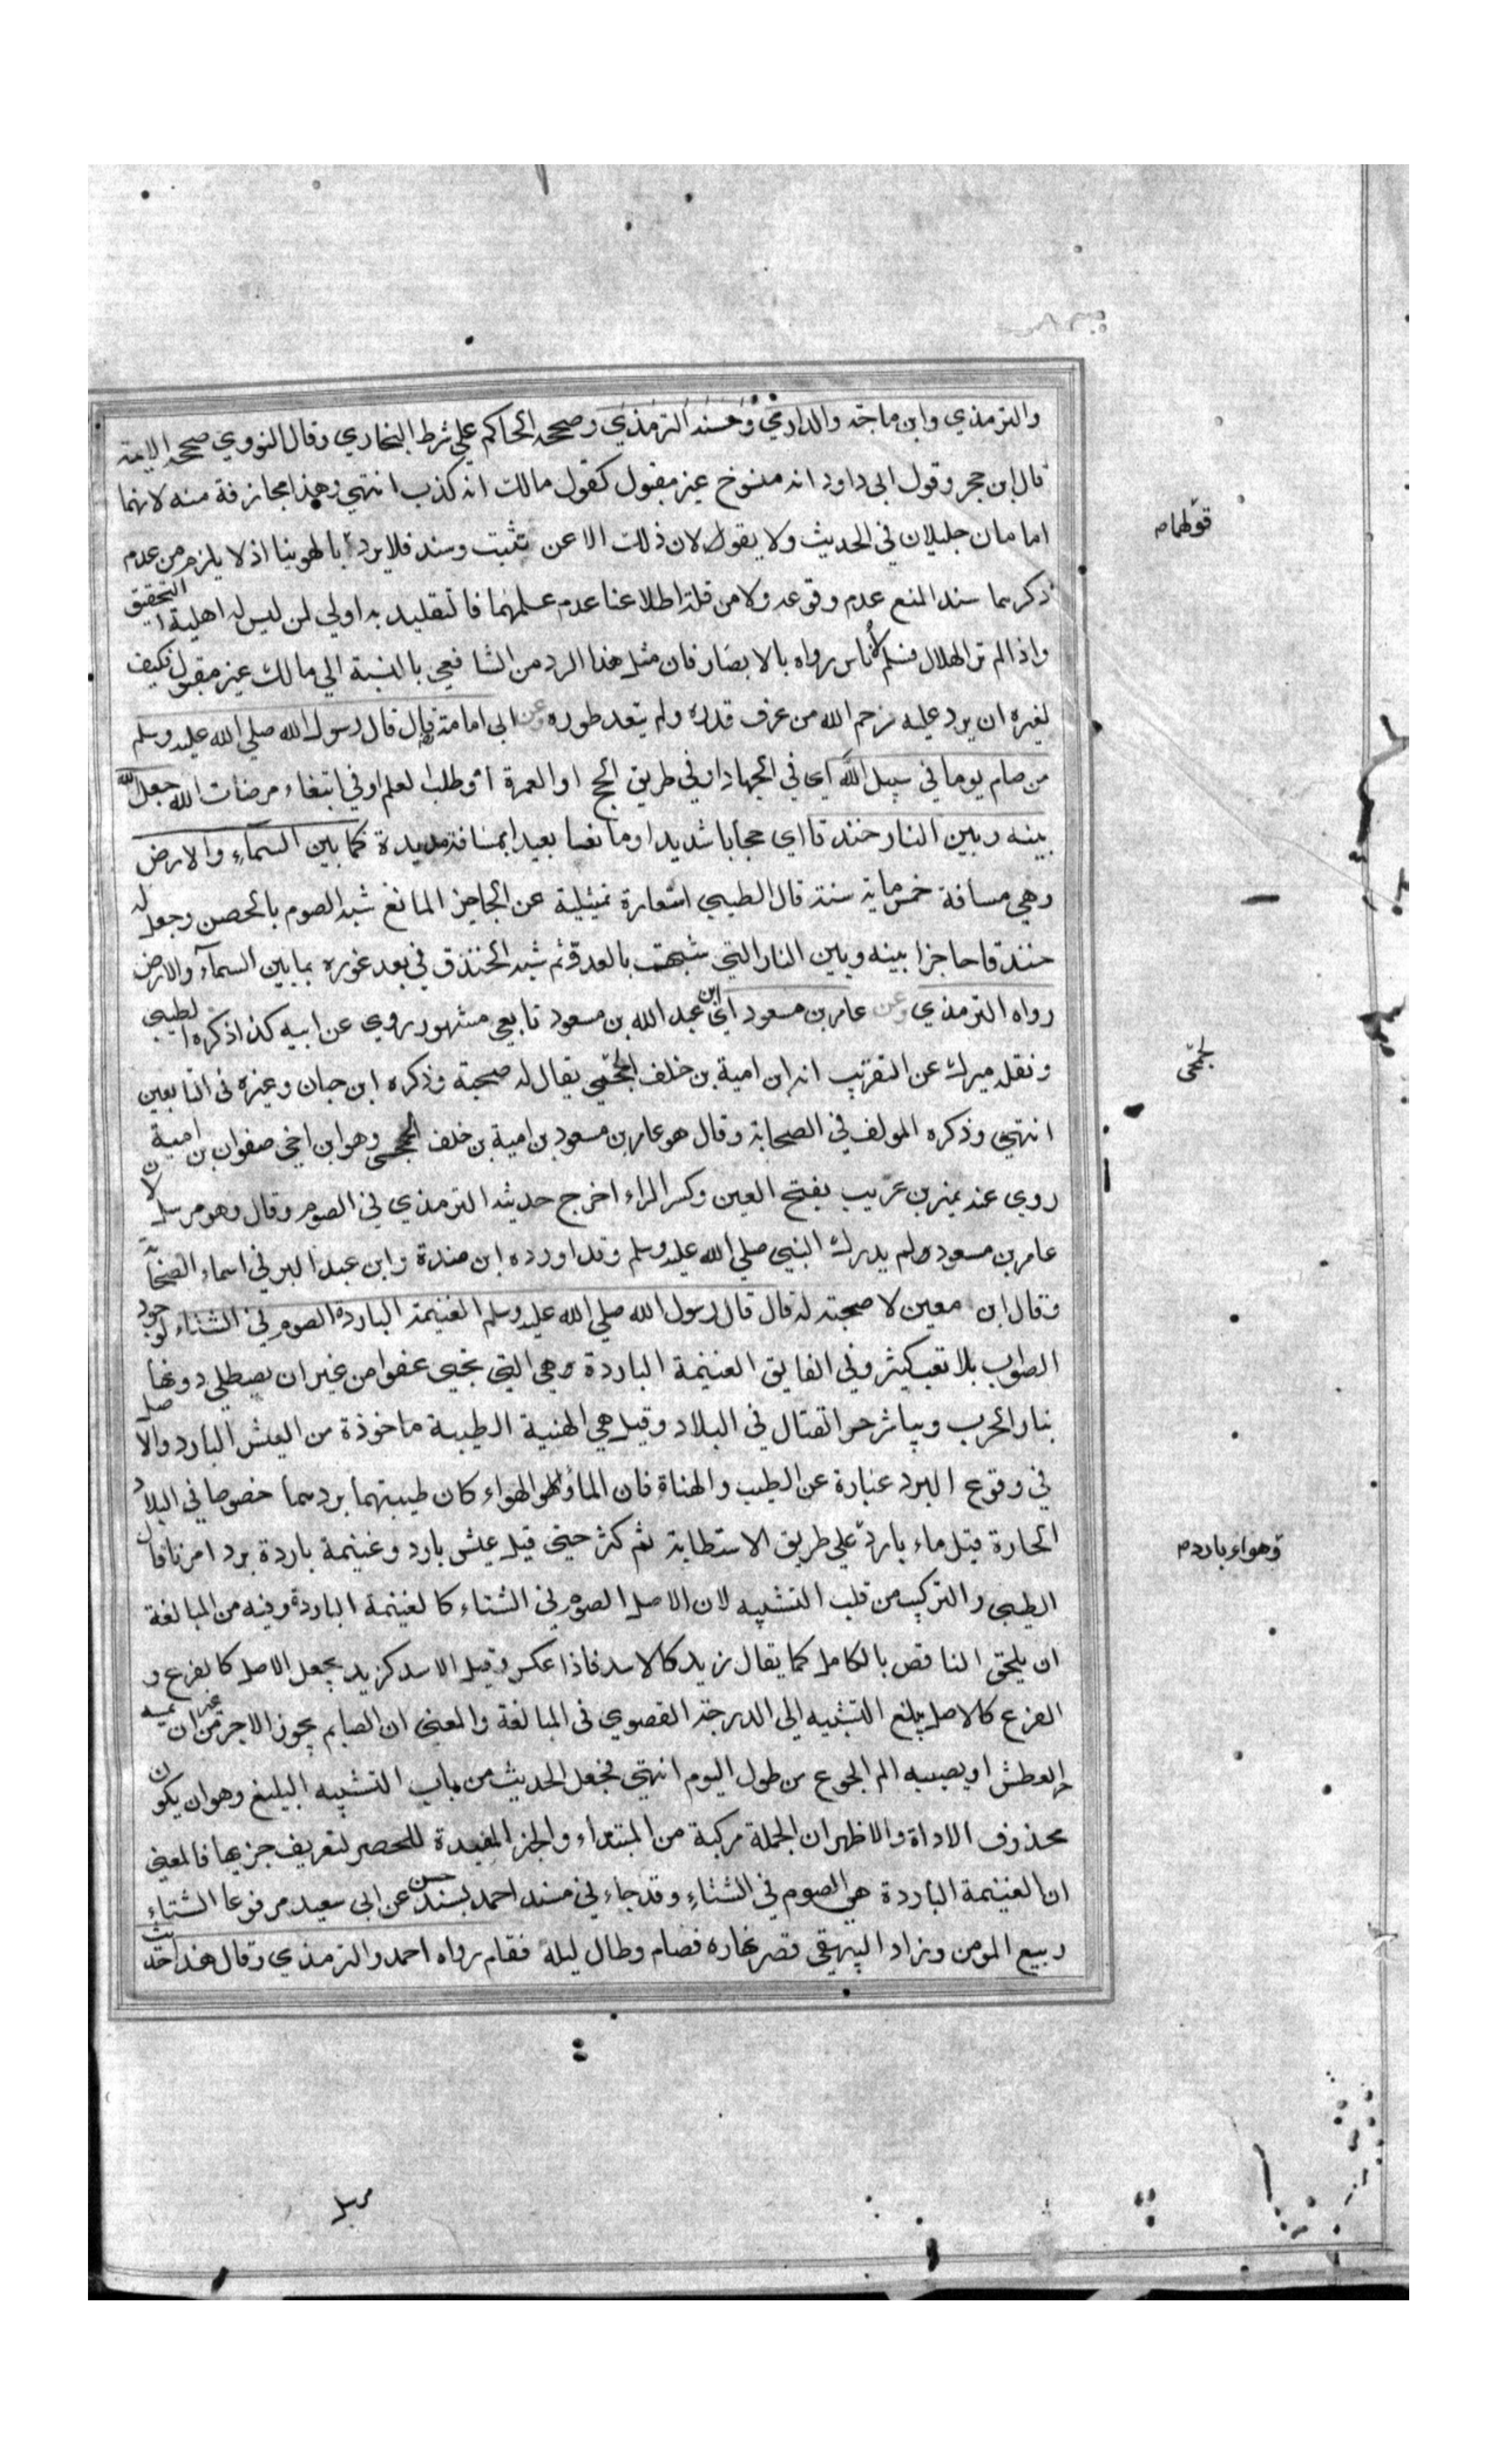 والترمذي وابن ماجة والدارمي وحسنه الترمذي وصححه الحاكم علي شرط البخاري وقال النووي صححه الايمة
قال ابن حجر وقول ابي داود انه منسوخ غير مقبول كقول مالك انه كذب انتهي وهذا مجازفة منه لانهما
امامان جليلان في الحديث ولا يقولان ذلك الا عن تثبت وسند فلا يرد بالهوينا اذ لا يلزم من عدم
قولهما
ذكرهما سند المنع عدم وقوعه ولا من قلة اطلاعنا عدم علمهما فالتقليد به اولي لمن ليس له اهلية التحقيق
واذا لم تر الهلال فسلم لاناس رواه بالابصار فان مثل هذا الرد من الشافعي بالنسبة الي مالك غير مقبول فكيف
لغيره ان يرد عليه فرحم الله من عرف قدره ولم يتعد طوره وعن ابي امامة قال قال رسول الله صلي الله عليه وسلم
من صام يوما في سبيل الله اي في الجهاد او في طريق الحج او العمرة او طلب العلم او في ابتغاء مرضات الله جعل الله
بينه وبين النار خندقا اي حجابا شديدا او مانعا بعيدا بمسافة مديدة كما بين السماء والارض
وهي مسافة خمس ماية سنة قال الطيبي استعارة تمثيلية عن الحاجز المانع شبه الصوم بالحصن وجعل له
خندقا حاجزا بينه وبين النار التي شبهت بالعدو ثم شبه الخندق في بعد غوره بما بين السماء والارض
رواه الترمذي وعن عامر بن مسعود اي ابن عبد الله بن مسعود تابعي مشهور روي عن ابيه كذا ذكره الطيبي
ونقل ميرك عن التقريب انه ابن امية بن خلف الجمحي يقال له صحبة وذكره ابن حبان وغيره في التابعين
جمحي
انتهي وذكره المولف في الصحابة وقال هو عامر بن مسعود بن امية بن خلف الجمحي وهو ابن اخي صفوان بن امية
روي عنه نمير بن عريب بفتح العين وكسر الراء اخرج حديثه الترمذي في الصوم وقال وهو مرسل لان
عامر بن مسعود لم يدرك النبي صلي الله عليه وسلم وقد اورده ابن مندة وابن عبد البر في اسماء الصحابة
وقال ابن معين لا صحبة له قال قال رسول الله صلي الله عليه وسلم الغنيمة الباردة الصوم في الشتاء لوجود
الثواب بلا تعب كثير وفي الفايق الغنيمة الباردة هي التي تجيء عفوا من غير ان يصطلي دونها
بنار الحرب ويباشر حر القتال في البلاد وقيل هي الهنية الطيبة ماخوذة من العيش البارد والاصل
في وقوع البرد عبارة عن الطيب والهناة فان الماء والهواء كان طيبتهما بردهما خصوصا في البلاد
الحارة قيل ماء بارد علي طريق الاستطابة ثم كثر حتي قيل عيش بارد وغنيمة باردة برد امرنا قال
وهواء بارد
الطيبي والتركيب من قلب التشبيه لان الاصل الصوم في الشتاء كالغنيمة الباردة وفيه من المبالغة
ان يلحق الناقص بالكامل كما يقال زيد كالاسد فاذا عكس وقيل الاسد كزيد يجعل الاصل كالفرع و
الفرع كالاصل يبلغ التشبيه الي الدرجة القصوي في المبالغة والمعني ان الصايم يحوز الاجر من غير ان يمسه
حر العطش او يصيبه الم الجوع من طول اليوم انتهي فجعل الحديث من باب التشبيه البليغ وهو ان يكون
محذوف الاداة والاظهر ان الجملة مركبة من المبتداء والخبر المفيدة للحصر لتعريف جزيها فالمعني
ان الغنيمة الباردة هي الصوم في الشتاء وقد جاء في مسند احمد بسند حسن عن ابي سعيد مرفوعا الشتاء
ربيع المومن وزاد البيهقي قصر نهاره فصام وطال ليله فقام رواه احمد والترمذي وقال هذا حديث
مرسل